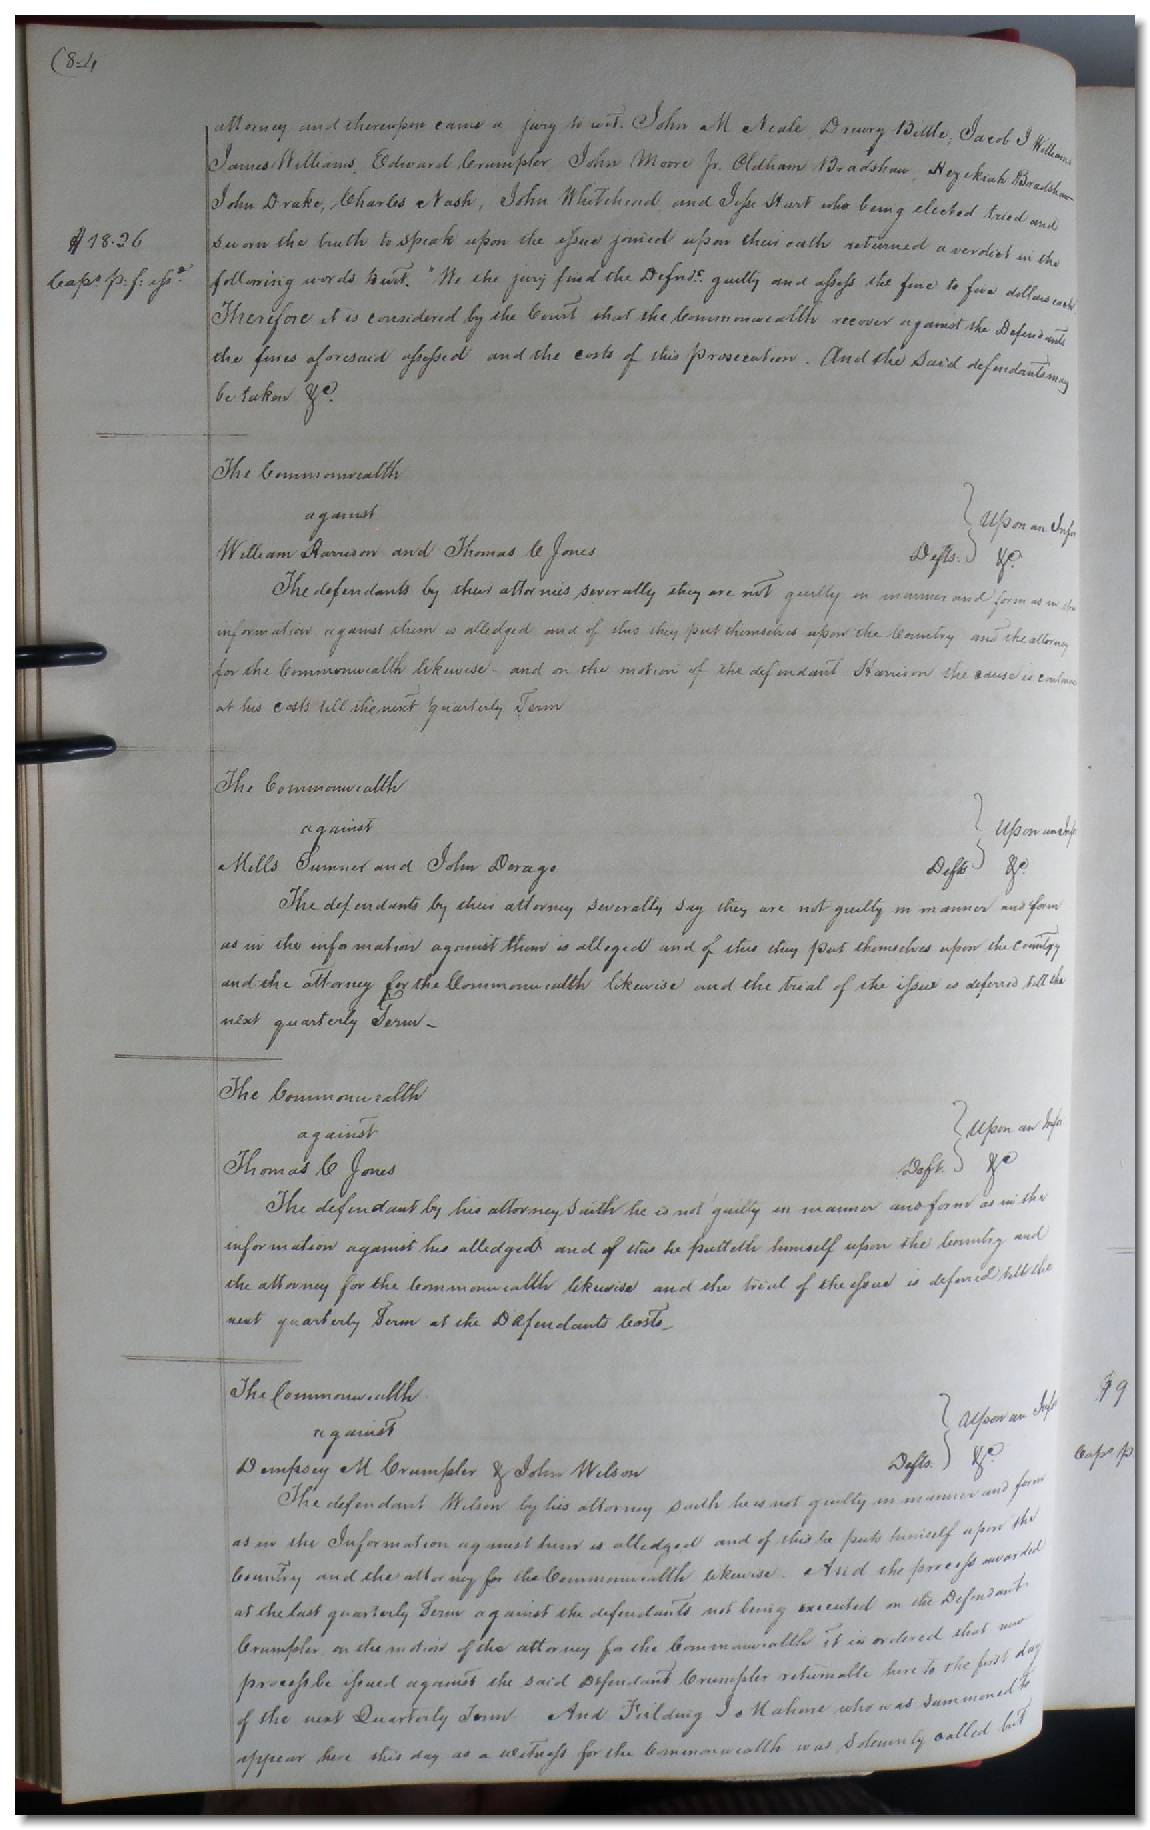 (84)
attorney and thereupon came a jury to wit. John M Neale, Drewry Bittle, Jacob J Williams
James Williams, Edward Crumpler, John Moore Jr. Oldham Bradshaw, Hezekiah Bradshaw
John Drake, Charles Nash, John Whitehead, and Jesse Hart who being elected tried and
$18.36
sworn the truth to speak upon the issue joined upon their oath returned a verdict in the
Caps. p. f. issd.
following words towit. "We the jury find the Defnds. guilty and assess the fine to five dollars each
Therefore it is considered by the Court that the Commonwealth recover against the Defendants
the fines aforesaid assessed and the costs of this prosecution. And the said defendants may
be taken &c.
The Commonwealth
against
Upon an Infor
William Harrison and Thomas C Jones Defts. &c.
The defendants by their attornies severally they are not guilty in manner and form as in the
information against them is alledged and of this they put themselves upon the Country and the attorney
for the Commonwealth likewise - and on the motion of the defendant Harrison the cause is continued
at his costs till the next quarterly Term
The Commonwealth
against
Upon an Infor
Mills Sumner and John Derago Defts &c.
The defendants by their attorney severally say they are not guilty in manner and form
as in the information against them is alleged and of this they put themselves upon the country
and the attorney for the Commonwealth likewise and the trial of the issue is deferred till the
next quarterly Term -
The Commonwealth
against
Upon an Infor
Thomas C Jones Deft. &c
The defendant by his attorney saith he is not guilty in manner and form as in the
information against his alledged and of this he putteth himself upon the Country and
the attorney for the Commonwealth likewise and the trial of the issue is deferred till the
next quarterly Term at the Defendants Costs -
The Commonwealth
against
Upon an Infor
Dempsey M Crumpler & John Wilson Defts. &c.
The defendant Wilson by his attorney saith he is not guilty in manner and form
as in the Information against him is alledged and of this he puts himself upon the
Country and the attorney for the Commonwealth likewise. And the process awarded
at the last quarterly Term against the defendants not being executed on the Defendant
Crumpler on the motion of the attorney for the Commonwealth it is ordered that new
process be issued against the said Defendant Crumpler returnable here to the first day
of the next Quarterly Term And Fielding J Mahone who was summoned to
appear here this day as a witness for the Commonwealth was solemnly called but
$9
Caps p